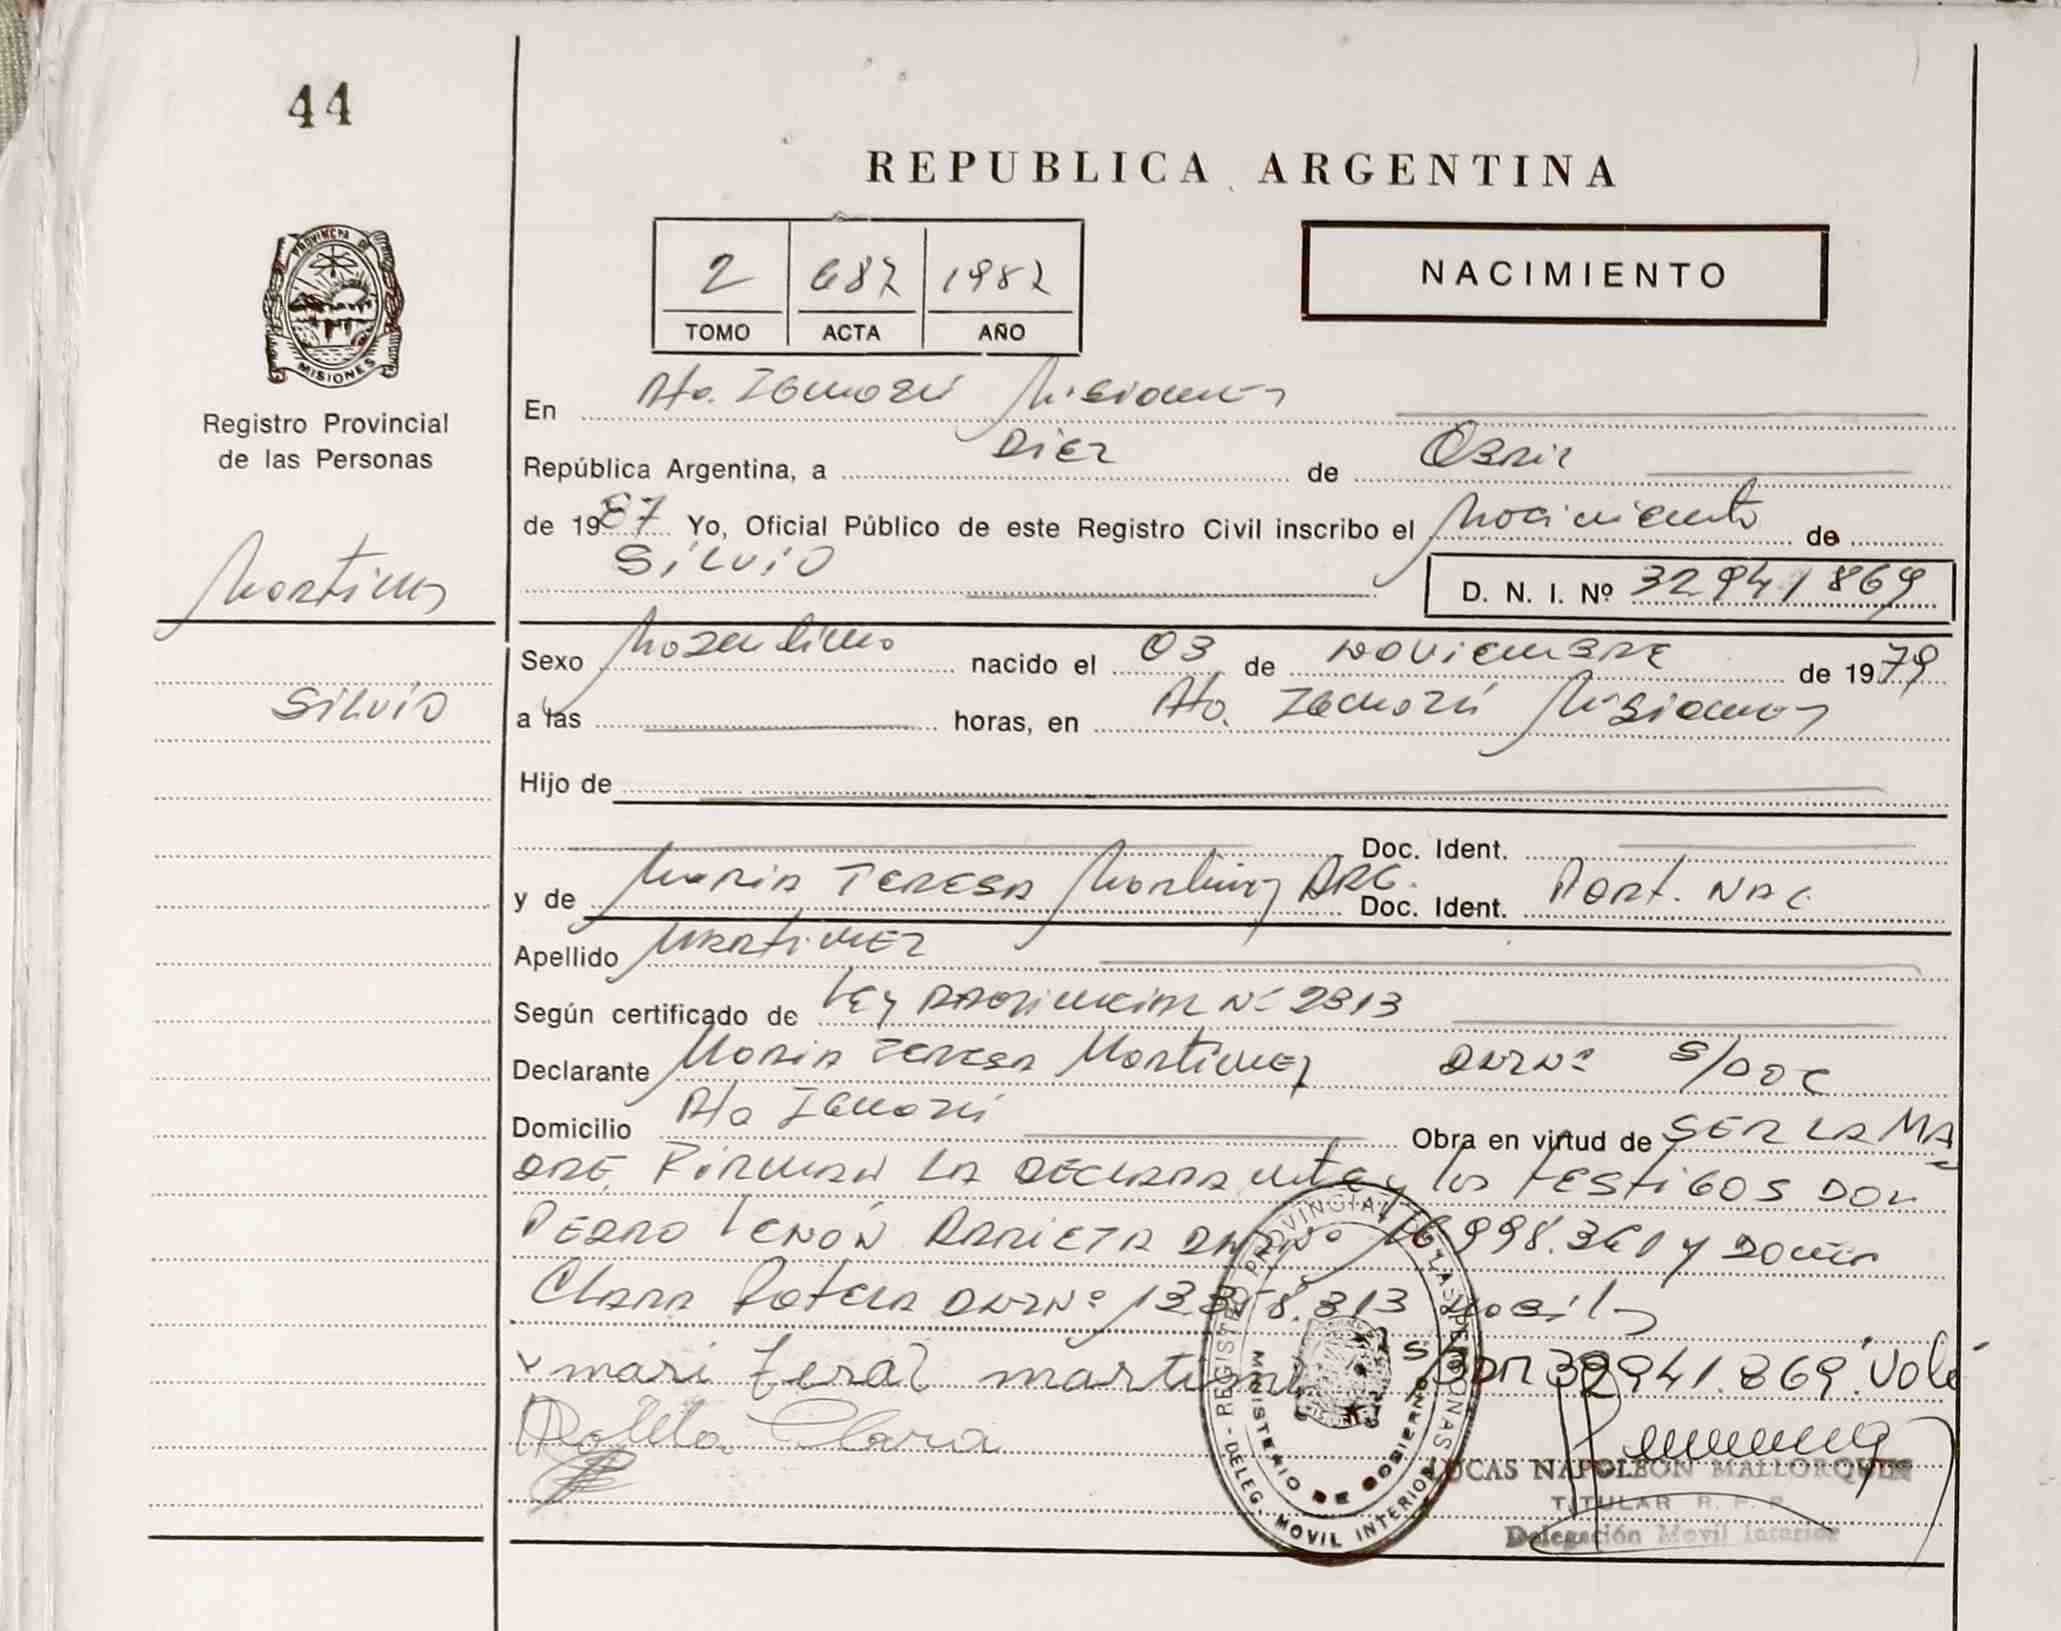 44
REPUBLICA ARGENTINA
2 687 1982
TOMO ACTA AÑO
NACIMIENTO
PROVINCIA DE
MISIONES
Registro Provincial
de las Personas
Martinez
Silvio
En Pto. Misiones
República Argentina, a Diez de Abril
de 1987 Yo, Oficial Público de este Registro Civil inscribo el Nacimiento de
Silvio
D. N. I. Nº 32941869
Sexo Masculino nacido el 03 de Noviembre de 1979
a las horas, en Pto. Misiones
Hijo de
Doc. Ident.
y de Maria Teresa Martinez ARG. Doc. Ident. Part. NAC.
Apellido Martinez
Según certificado de Ley Provincial Nº 2313
Declarante Maria Teresa Martinez DNI Nº S/DOC
Domicilio Pto Obra en virtud de SER LA MA
DRE, Firman LA DECLARANTE y los testigos Don
Pedro Arrieta DNI Nº 998.361 y Doña
Clara DNI Nº 313
mari martine S/B DNI 32941.869. Vale
Clara
REGISTRO PROVINCIAL DE LAS PERSONAS
DELEG. MOVIL INTERIOR
MINISTERIO DE GOBIERNO
LUCAS NAPOLEON MALLORQUIN
TITULAR R. P. P.
Delegación Movil Interior